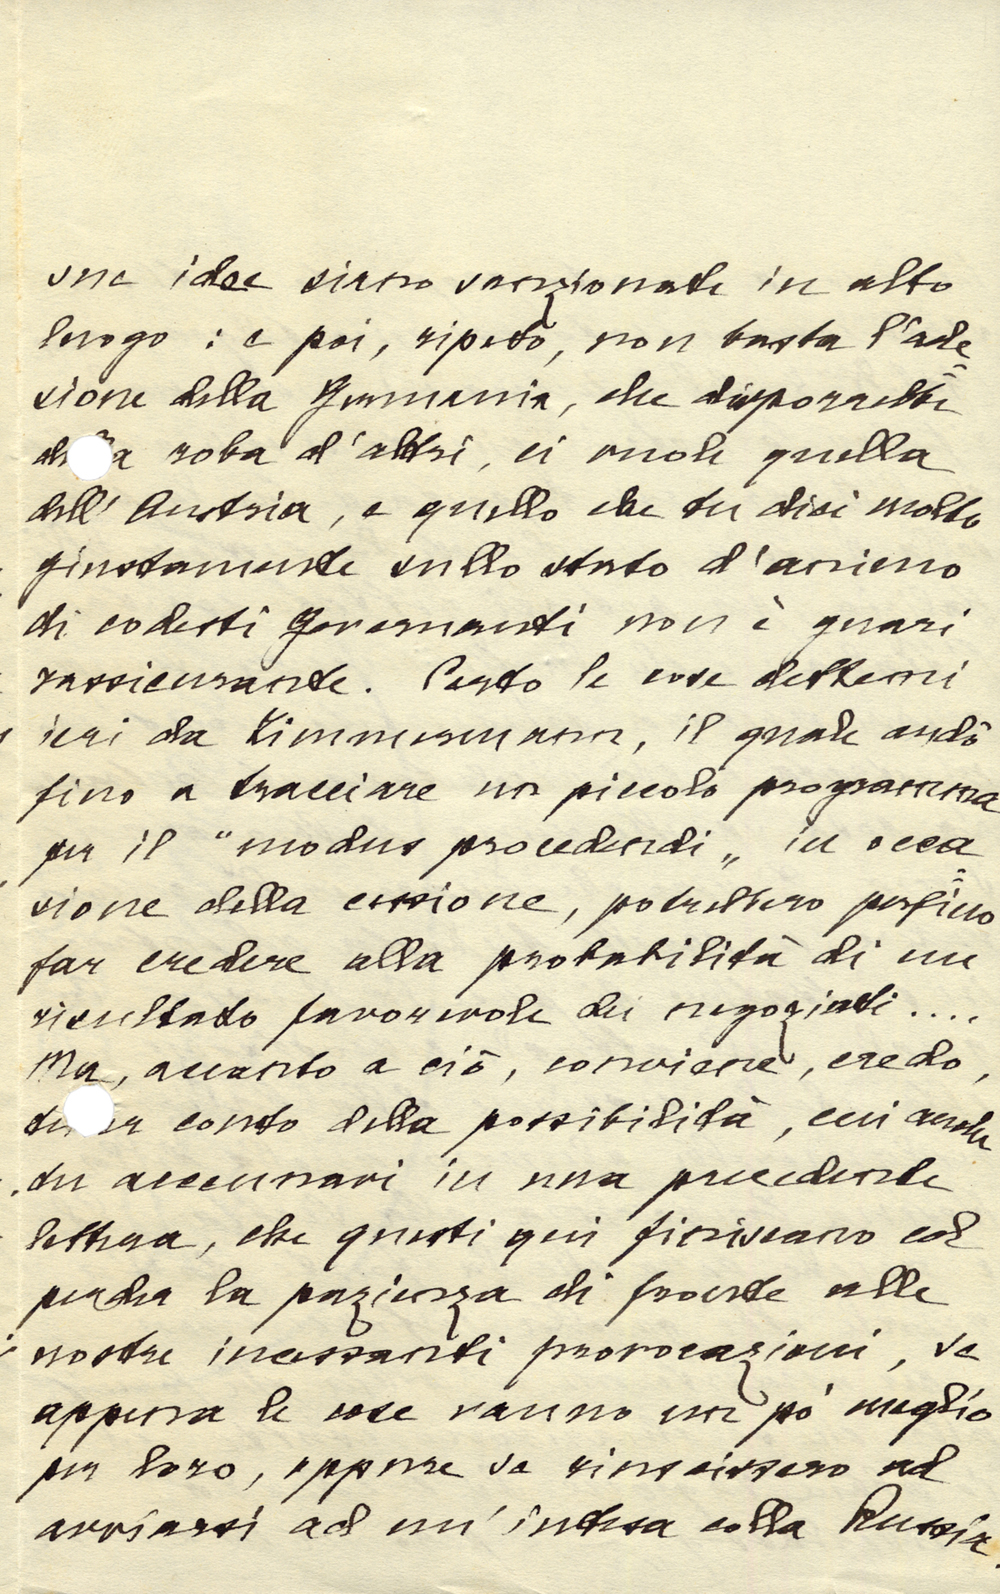 sue idee siano sanzionate in alto
luogo : e poi, ripeto, non basta l'ade=
sione della Germania, che disporrebbe
della roba d'altri, ci vuole quella
dell'Austria, e quello che tu dici molto
giustamente sullo stato d'animo
di codesti Governanti non è quasi
rassicurante. Certo le cose dettemi
ieri da Zimmermann, il quale andò
fino a tracciare un piccolo programma
per il "modus procedendi" in occa=
sione della cessione, potrebbero perfino
far credere alla probabilità di un
risultato favorevole dei negoziati ....
Ma, quanto a ciò, conviene, credo,
tener conto della possibilità, cui anche
tu accennavi in una precedente
lettera, che questi qui finiscano col
perder la pazienza di fronte alle
nostre incessanti provocazioni, se
appena le cose vanno un pò meglio
per loro, oppure se riuscissero ad
avviarsi ad un'intesa colla Russia.